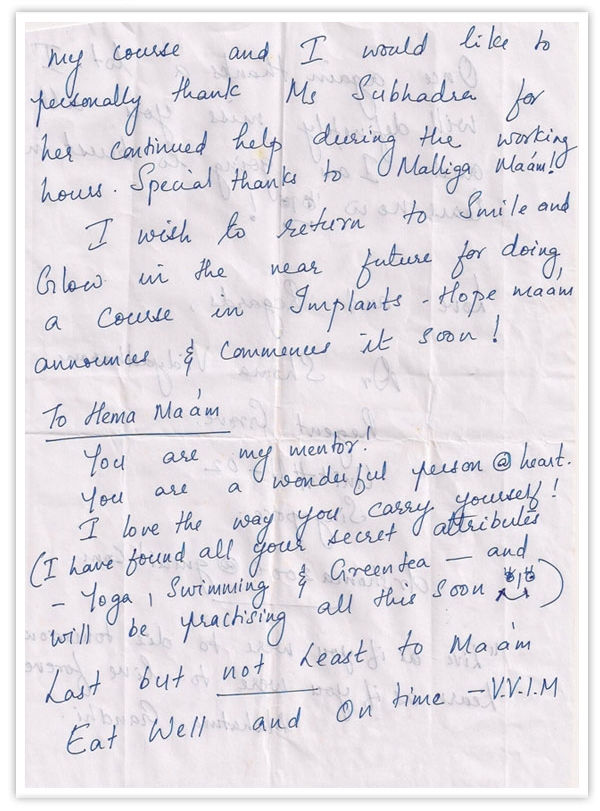 my course and I would like to
personally thank Ms Subhadra for
her continued help during the working
hours. Special thanks to Malliga Ma'am!
I wish to return to Smile and
Glow in the near future for doing
a course in Implants - Hope ma'am
announces & commences it soon!
To Hema Ma'am
You are my mentor!
You are a wonderful person @ heart.
I love the way you carry yourself!
(I have found all your secret attributes
- Yoga, Swimming & Greentea - and
will be practising all this soon )
Last but not Least to Ma'am
Eat Well and On time - V.V.I.M